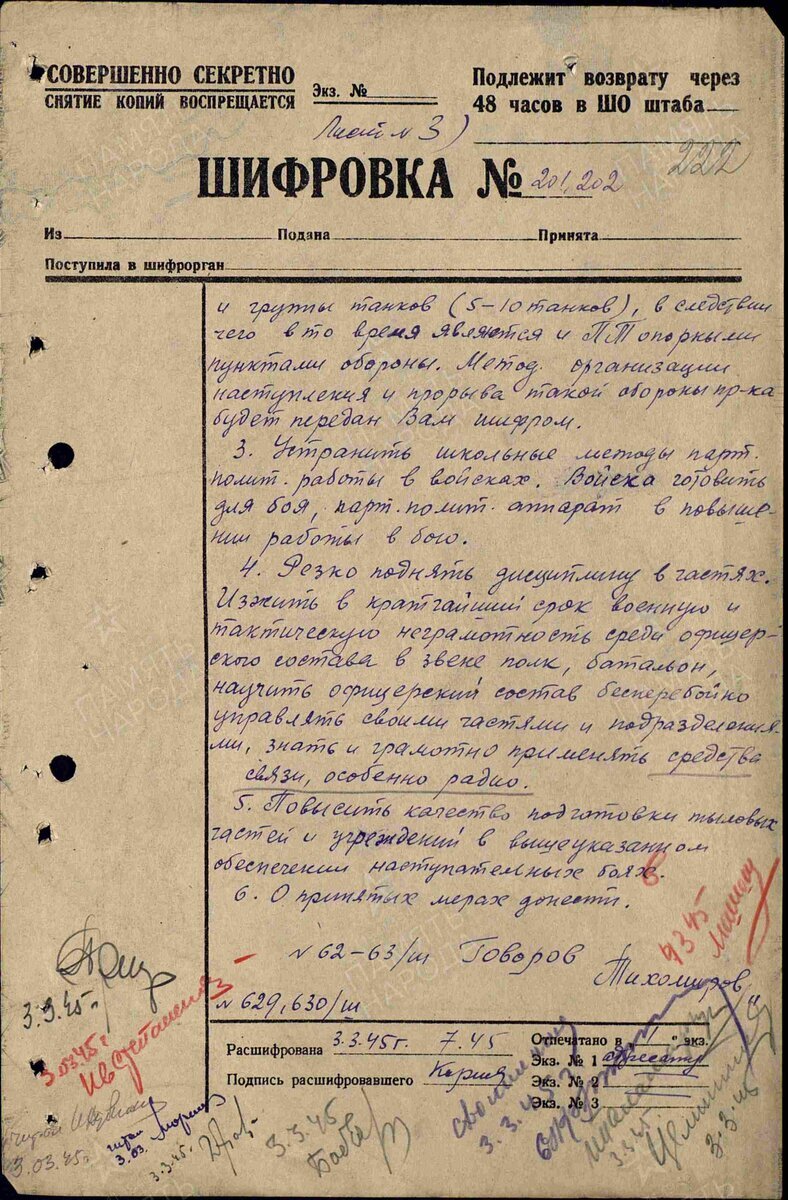 СОВЕРШЕННО СЕКРЕТНО
СНЯТИЕ КОПИЙ ВОСПРЕЩАЕТСЯ
Экз. №
Подлежит возврату через
48 часов в ШО штаба
Лист № 3)
222
ШИФРОВКА № 201, 202
Из Подана Принята
Поступила в шифрорган
и группы танков (5-10 танков), в следствии
чего в то время являются и ПТ опорными
пунктами обороны. Метод. организации
наступления и прорыва такой обороны пр-ка
будет передан Вам шифром.
3. Устранить школьные методы парт.
полит. работы в войсках. Войска готовить
для боя, парт. полит. аппарат в повыше-
нии работы в бою.
4. Резко поднять дисциплину в частях.
Изжить в кратчайший срок военную и
тактическую неграмотность среди офицер-
ского состава в звене полк, батальон,
научить офицерский состав бесперебойно
управлять своими частями и подразделения-
ми, знать и грамотно применять средства
связи, особенно радио.
5. Повысить качество подготовки тыловых
частей и учреждений в вышеуказанном
обеспечении наступательных боях.
6. О принятых мерах донести.
№ 62-63/ш Говоров
Тихомиров
№ 629, 630/ш
3.3.45г.
3.03.45г.
3.03.45г.
3.03.
3.3.45г.
3.3.45
Расшифрована 3.3.45г. 7.45
Подпись расшифровавшего
Отпечатано в " " экз.
Экз. № 1 адресату
Экз. № 2
Экз. № 3
3.3.45
3.3.45г.
3.3.45
ПАМЯТЬ
НАРОДА